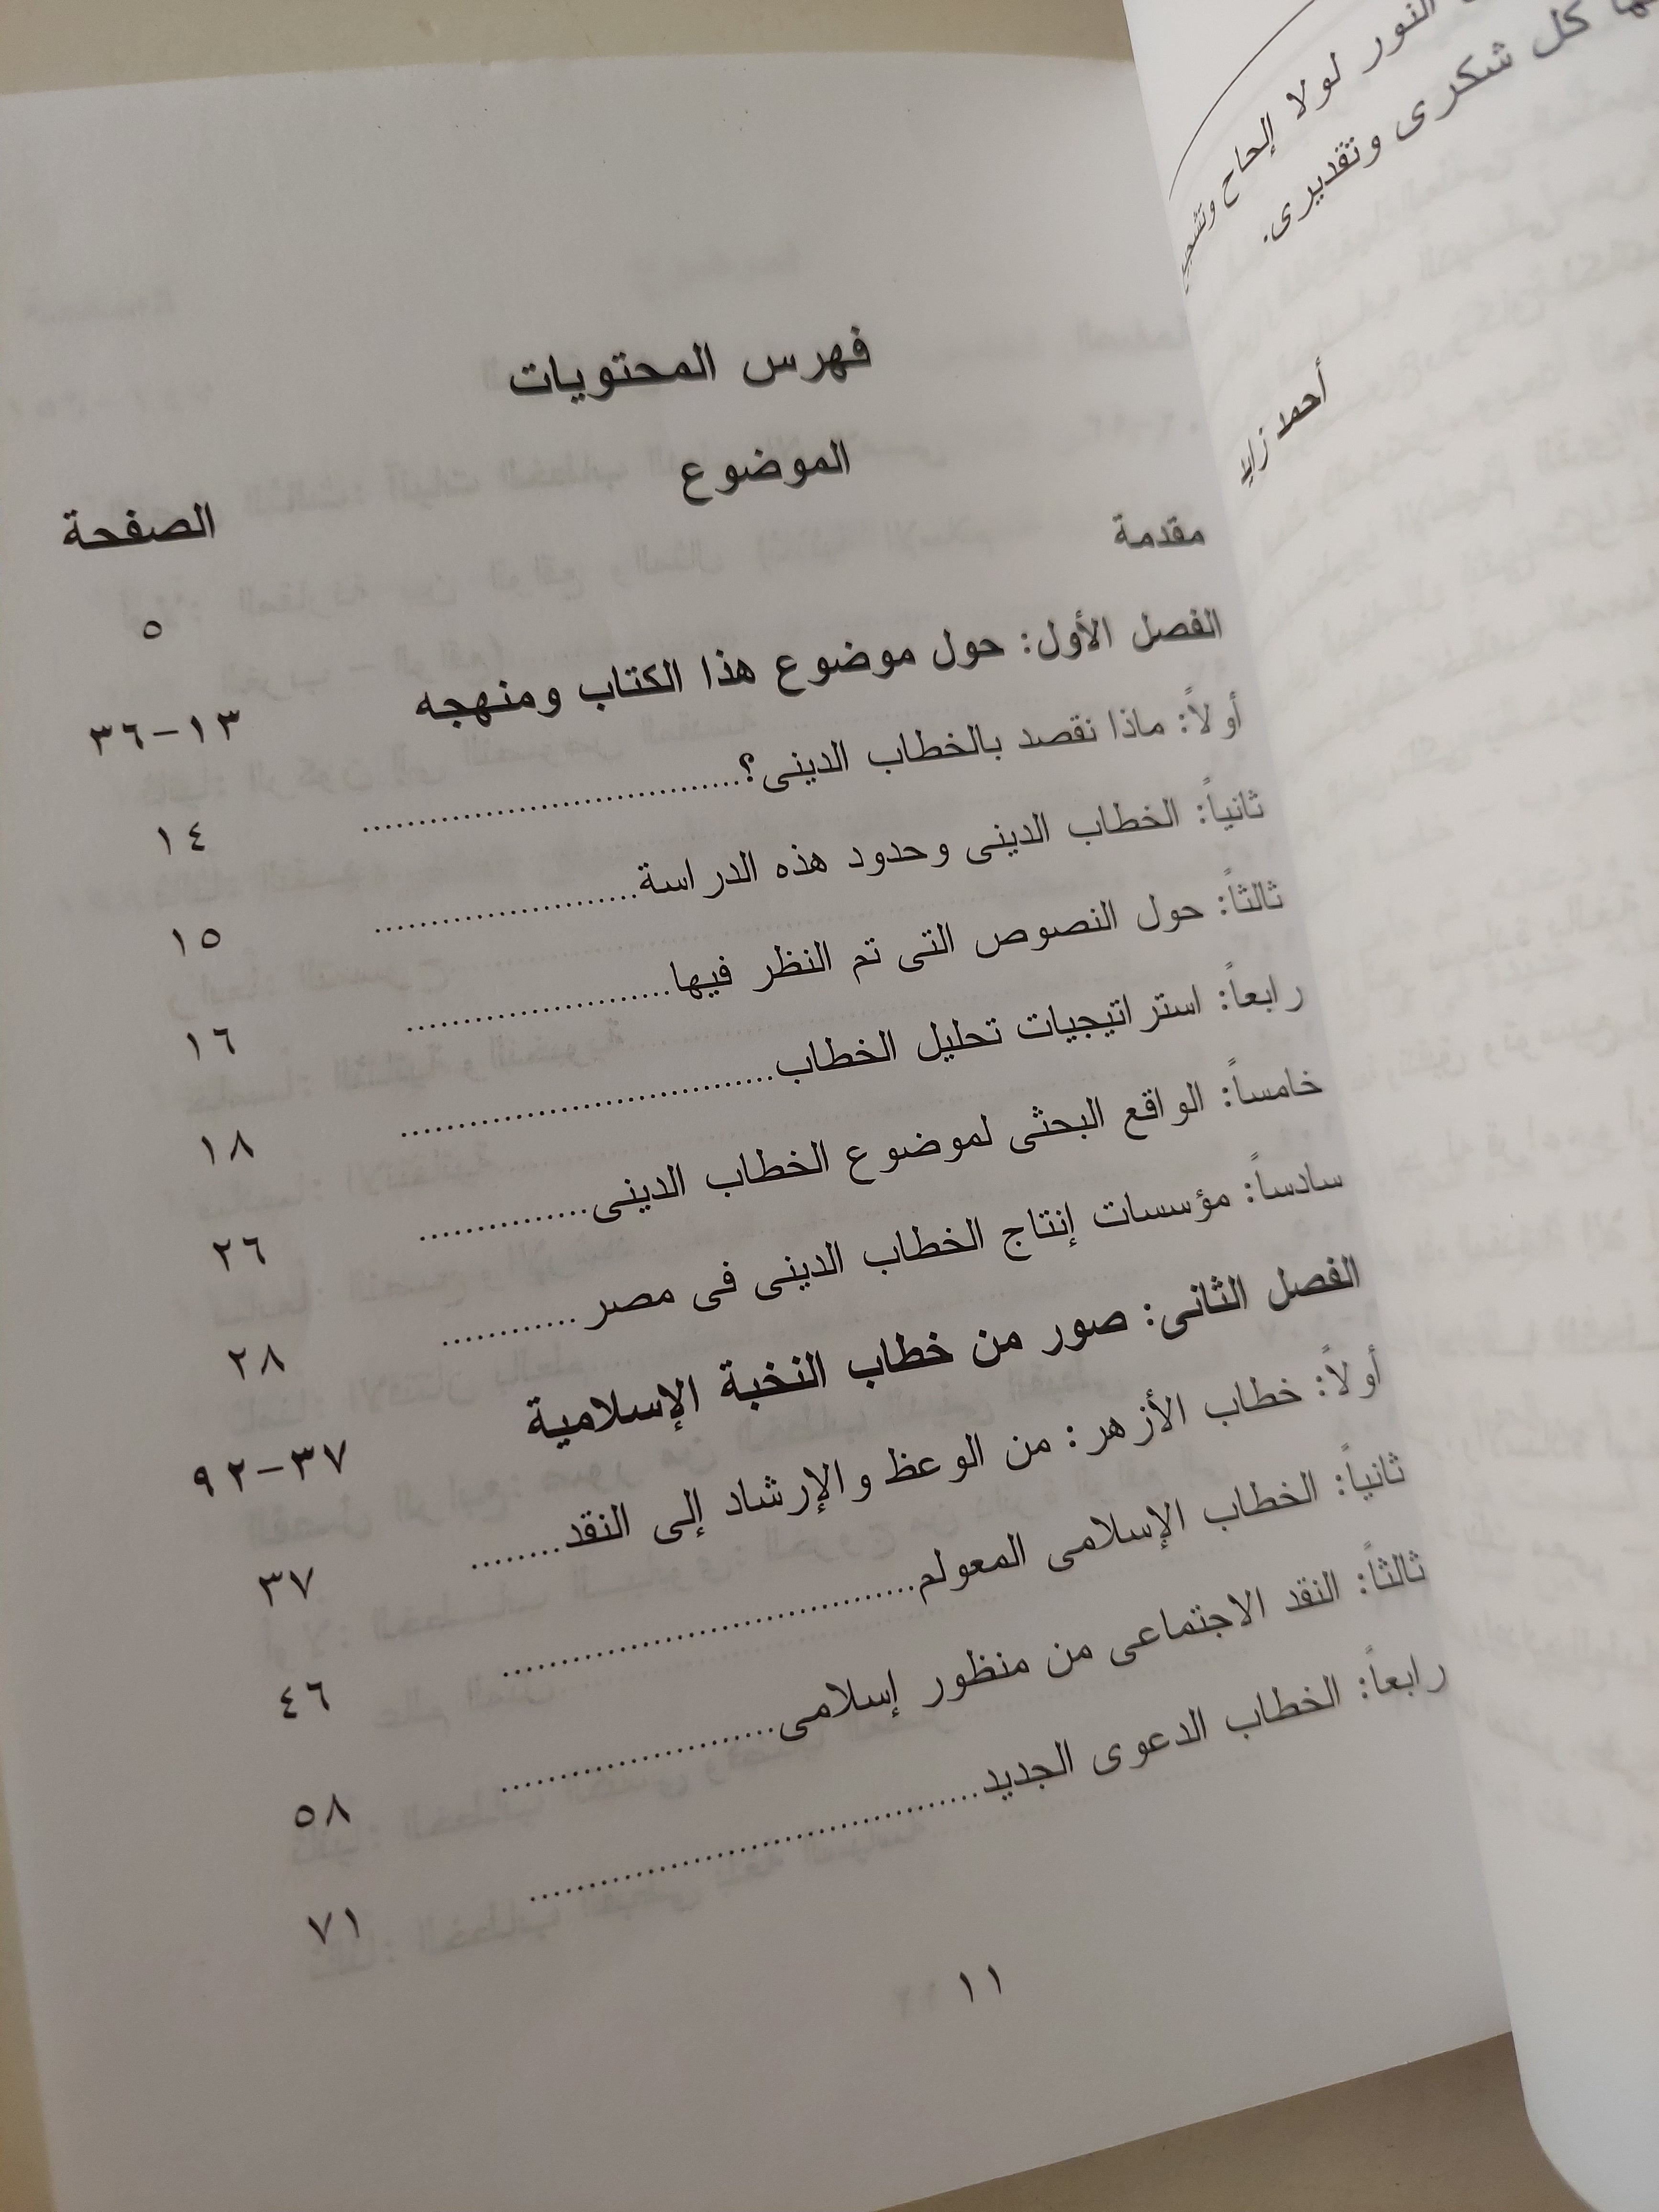 النور لولا إلحاح
كل شكرى وتقديرى.
أحمد زايد
فهرس المحتويات
الموضوع
الصفحة
مقدمة
٥
الفصل الأول: حول موضوع هذا الكتاب ومنهجه
١٣-٣٦
أولاً: ماذا نقصد بالخطاب الدينى؟
١٤
ثانياً: الخطاب الدينى وحدود هذه الدراسة
١٥
ثالثاً: حول النصوص التى تم النظر فيها
١٦
رابعاً: استراتيجيات تحليل الخطاب
١٨
خامساً: الواقع البحثى لموضوع الخطاب الدينى
٢٦
سادساً: مؤسسات إنتاج الخطاب الدينى فى مصر
٢٨
الفصل الثانى: صور من خطاب النخبة الإسلامية
٣٧-٩٢
أولاً: خطاب الأزهر: من الوعظ والإرشاد إلى النقد
٣٧
ثانياً: الخطاب الإسلامى المعولم
٤٦
ثالثاً: النقد الاجتماعى من منظور إسلامى
٥٨
رابعاً: الخطاب الدعوى الجديد
٧١
١١